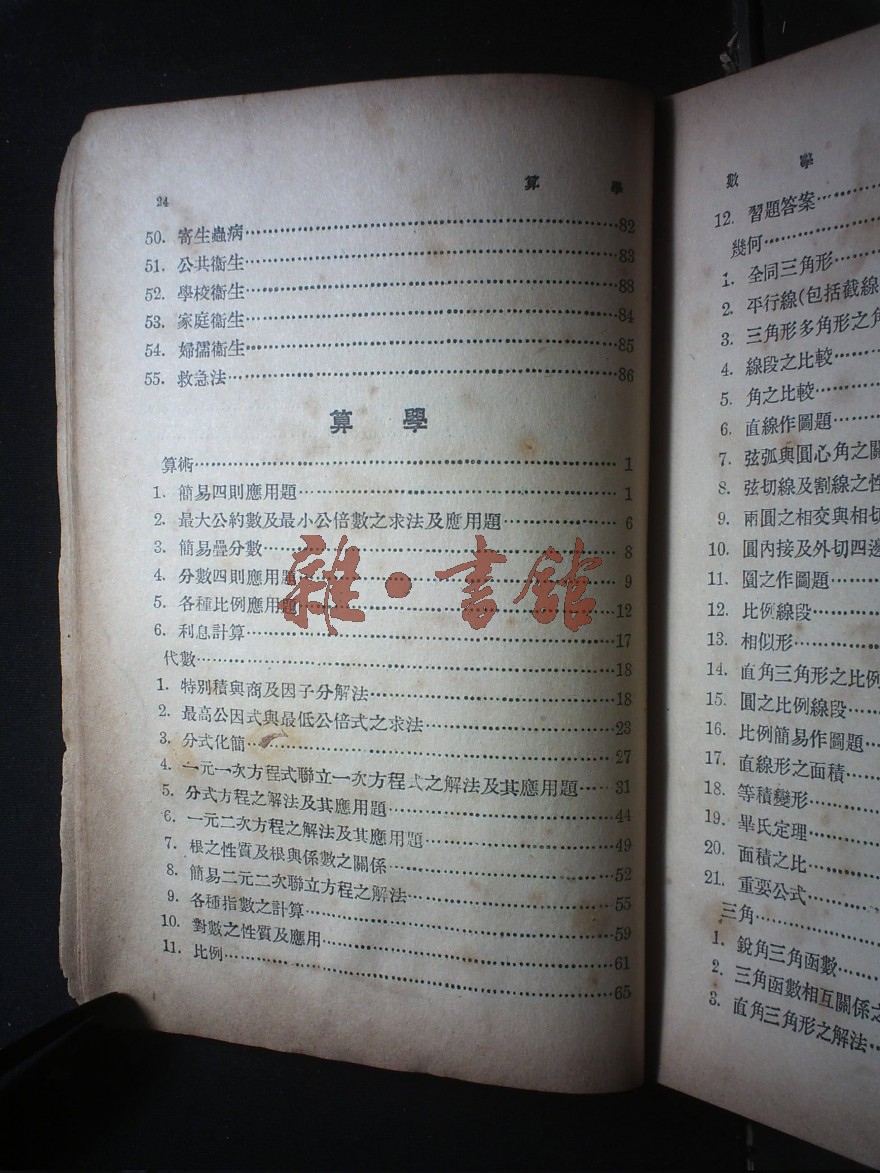 24 算 學
50. 寄生蟲病 82
51. 公共衞生 83
52. 學校衞生 88
53. 家庭衞生 84
54. 婦孺衞生 85
55. 救急法 86
算 學
算術 1
1. 簡易四則應用題 1
2. 最大公約數及最小公倍數之求法及應用題 6
3. 簡易疊分數 8
4. 分數四則應用題 9
5. 各種比例應用題 12
6. 利息計算 17
代數 18
1. 特別積與商及因子分解法 18
2. 最高公因式與最低公倍式之求法 23
3. 分式化簡 27
4. 一元一次方程式聯立一次方程式之解法及其應用題 31
5. 分式方程之解法及其應用題 44
6. 一元二次方程之解法及其應用題 49
7. 根之性質及根與係數之關係 52
8. 簡易二元二次聯立方程之解法 55
9. 各種指數之計算 59
10. 對數之性質及應用 61
11. 比例 65
雜·書館
數 學
12. 習題答案
幾何
1. 全同三角形
2. 平行線(包括截線
3. 三角形多角形之角
4. 線段之比較
5. 角之比較
6. 直線作圖題
7. 弦弧與圓心角之關
8. 弦切線及割線之性
9. 兩圓之相交與相切
10. 圓內接及外切四邊
11. 圓之作圖題
12. 比例線段
13. 相似形
14. 直角三角形之比例
15. 圓之比例線段
16. 比例簡易作圖題
17. 直線形之面積
18. 等積變形
19. 畢氏定理
20. 面積之比
21. 重要公式
三角
1. 銳角三角函數
2. 三角函數相互關係之
3. 直角三角形之解法